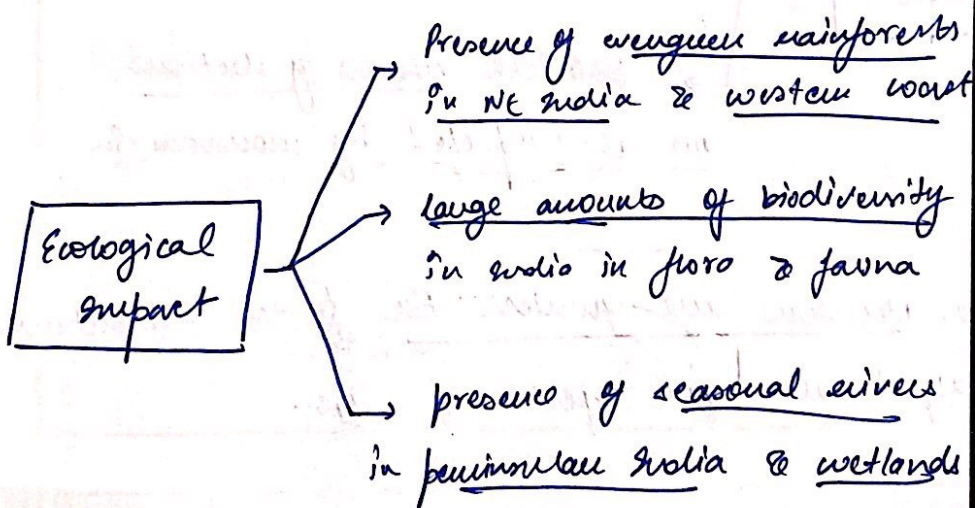 Presence of evergreen rainforests
in NE India & western coast
Ecological
Impact
large amounts of biodiversity
in India in flora & fauna
presence of seasonal rivers
in peninsular India & wetlands